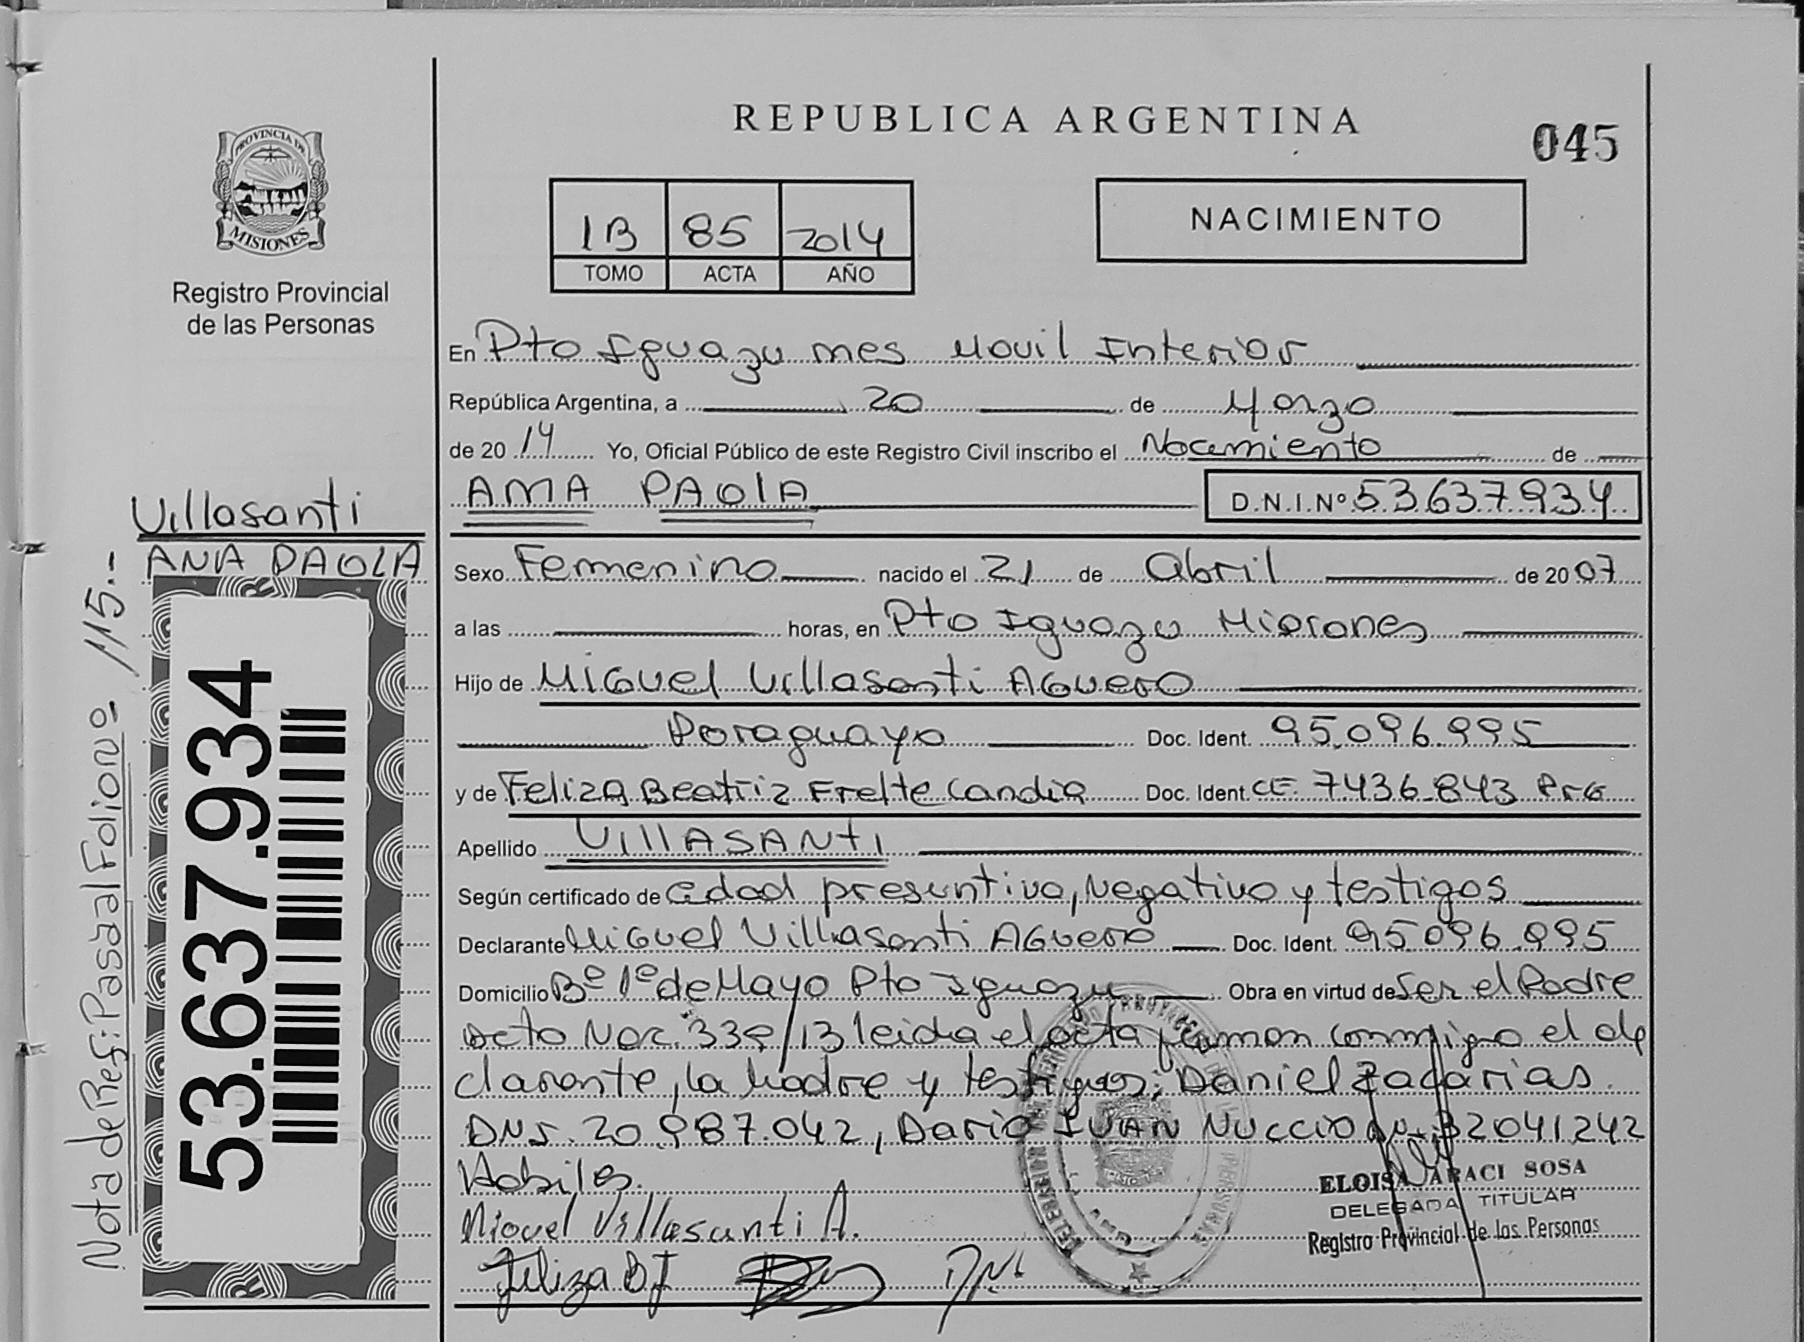 REPUBLICA ARGENTINA
045
PROVINCIA DE
MISIONES
Registro Provincial
de las Personas
1B 85 2014
TOMO ACTA AÑO
NACIMIENTO
En Pto Iguazu mes Movil Interior
República Argentina, a 20 de Marzo
de 20 14 Yo, Oficial Público de este Registro Civil inscribo el Nacimiento de
AMA PAOLA D.N.I.Nº 53.637.934
Villasanti
ANA PAOLA
Sexo Femenino nacido el 21 de Abril de 20 07
a las horas, en Pto Iguazu Misiones
Hijo de Miguel Villasanti Aguero
Paraguayo Doc. Ident. 95.096.995
y de Feliza Beatriz Frette Candia Doc. Ident. CE. 7436.843 PrG
Apellido VillASANti
Según certificado de edad presuntiva, Negativo y testigos
Declarante Miguel Villasanti Aguero Doc. Ident. 95096.995
Domicilio Bº 1º de Mayo Pto Iguazu Obra en virtud de Ser el Padre
acto Nac. 339/13 leida el acta firman conmigo el de
clarante, la Madre y testigos; Daniel Zacarias
DNI. 20.987.042, Dario IVAN NUCCIO 32041242
Habiles.
Miguel Villasanti A.
Feliza B F
ELOISA ARACI SOSA
DELEGADA TITULAR
Registro Provincial de las Personas
53.637.934
Nota de Ref: Pasa al Folio nº 115.-